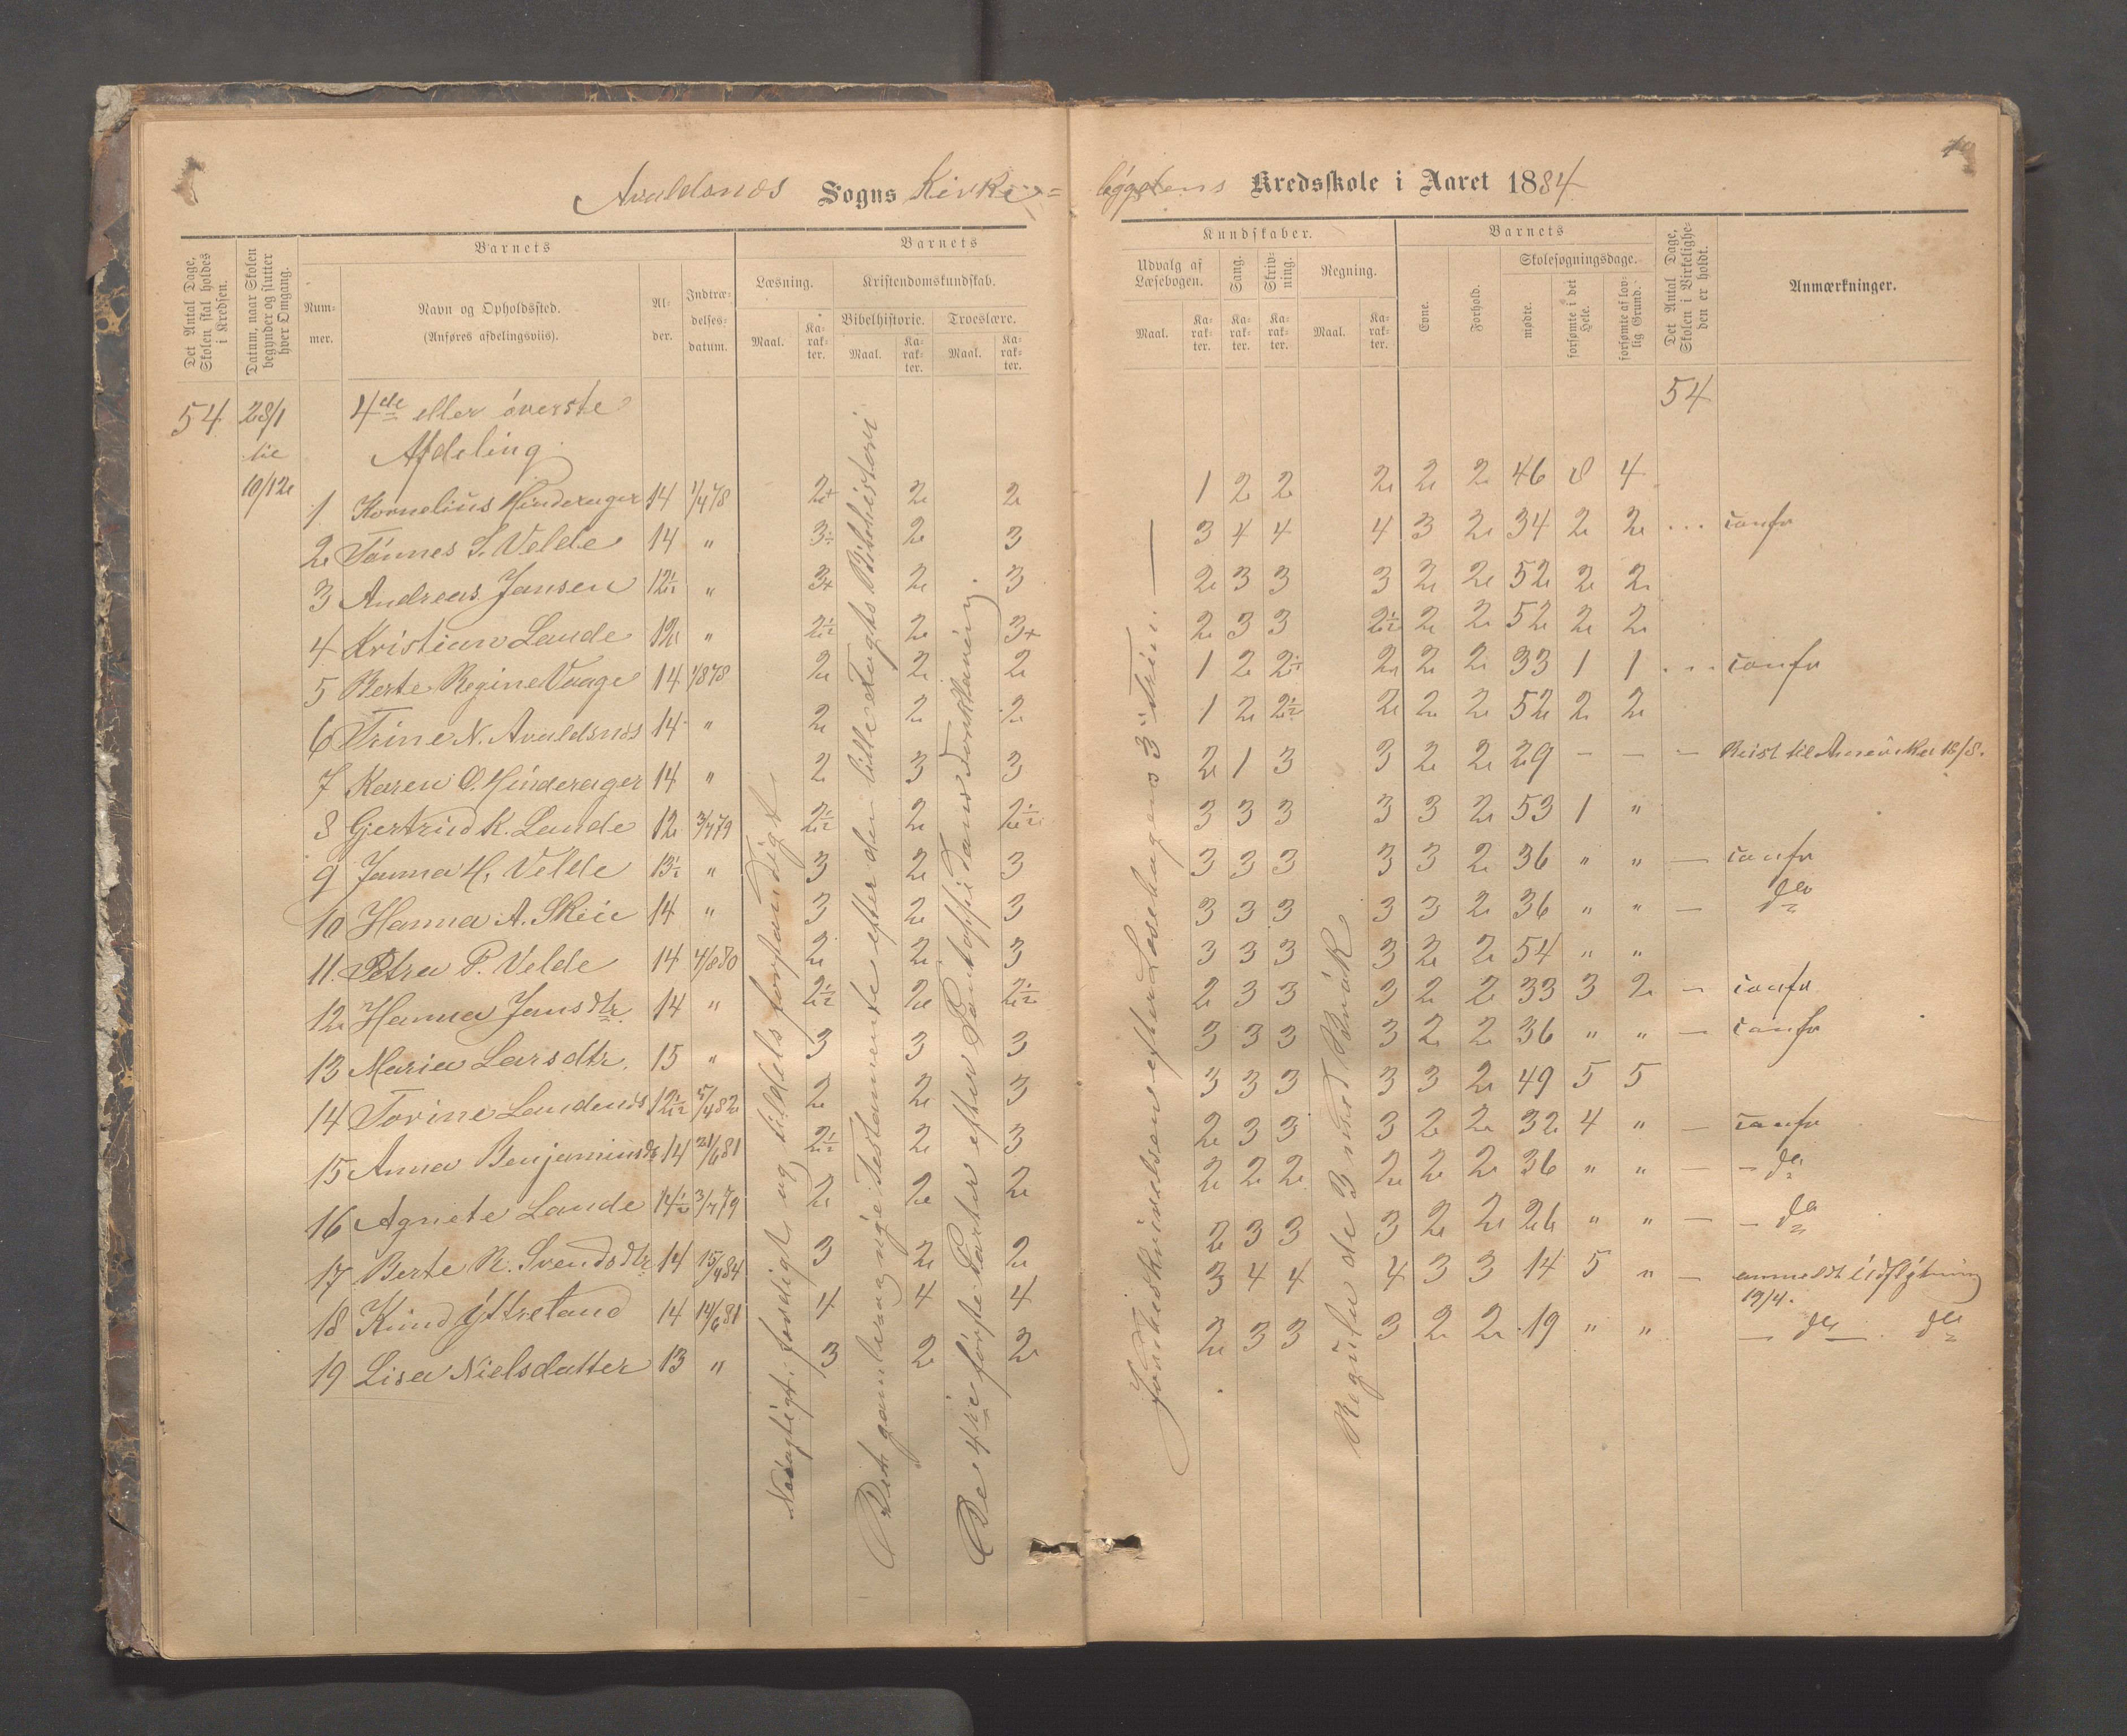 Avaldsnes Sogns Kirke=
løgstens Kredsskole i Aaret 1884
Det Antal Dage, Skolen skal holdes i Kredsen.
Datum, naar Skolen begynder og slutter hver Omgang.
Barnets
Nummer.
Navn og Opholdssted.
(Anføres afdelingsviis).
Alder.
Indtrædelsesdatum.
Barnets
Læsning.
Maal.
Karakter.
Kristendomskundskab.
Bibelhistorie.
Maal.
Karakter.
Troeslære.
Maal.
Karakter.
Kundskaber.
Udvalg af Læsebogen.
Maal.
Karakter.
Sang.
Karakter.
Skridning.
Karakter.
Regning.
Maal.
Karakter.
Barnets
Evne.
Forhold.
Skolesøgningsdage.
mødte.
forsømte i det Hele.
forsømte af lovlig Grund.
Det Antal Dage, Skolen i Virkeligheden er holdt.
Anmærkninger.
54 28/1 4de eller øverste 54
til Afdeling
19/12
1 Kornelius Hinderager 14 1/4 78 2+ 2 2 1 2 2 2 2 2 46 8 4
2 Tønnes S. Velde 14 " 3÷ 2 3 3 4 4 4 3 2 34 2 2 ... confr
3 Andreas Jansen 12½ " 3+ 2 3 2 3 3 3 2 2 52 2 2
4 Kristian Lande 12 " 2½ 2 3+ 2 3 3 2½ 2 2 52 2 2
5 Berte Regine Vaage 14 1/8 78 2 2 2 1 2 2÷ 2 2 2 33 1 1 ... confr
6 Trine N. Avaldsnes 14 " 2 2 2 1 2 2½ 2 2 2 52 2 2
7 Karen O. Hinderager 14 " 2 3 3 2 1 3 3 2 2 29 — — — Reist til Amerika 18/8.
8 Gjertrud K. Lande 12 3/7 79 2½ 2 2½ 3 3 3 3 3 2 53 1 "
9 Janna H. Velde 13½ " 3 2 3 3 3 3 3 3 2 36 " " — confr
10 Hanna A. Skeie 14 " 3 2 3 3 3 3 3 3 2 36 " " — do
11 Petra P. Velde 14 4/8 80 2 2 3 3 3 3 3 2 2 54 " "
12 Hanna Jansdtr. 14 " 2½ 2 2½ 2 3 3 3 2 2 33 3 2 — confr
13 Maria Larsdtr. 15 " 3 3 3 3 3 3 3 2 2 36 " " — confr
14 Torine Landenes 12½ 5/4 82 2 2 3 3 3 3 3 3 2 49 5 5
15 Anna Benjaminsd 14 21/6 81 2½ 2 3 2 3 3 3 2 2 32 4 " — confr
16 Agnete Lande 14½ 3/7 79 2 2 2 2 2 2 2 2 2 36 " " — — do
17 Berte R. Svendsdtr 14 15/4 84 3 2 2 2 3 3 3 2 2 26 " " — — do
18 Knud Yttreland 14 14/6 81 4 4 4 3 4 4 4 3 3 14 5 " — anmeldt Udflytning
19/4.
19 Lisa Nielsdatter 13 " 3 2 2 2 3 3 3 2 2 19 " " — do — do
Nøiagtigt, færdigt og tildels forstandigt
Det gamle og nye Testamente efter den lille Vogts Bibelhistori
De 4re første Parter efter Pontoppidans Forklaring.
Jordbeskrivelsen efter Læsebogens 3die Trin. —
Regula de 3 med Brøk